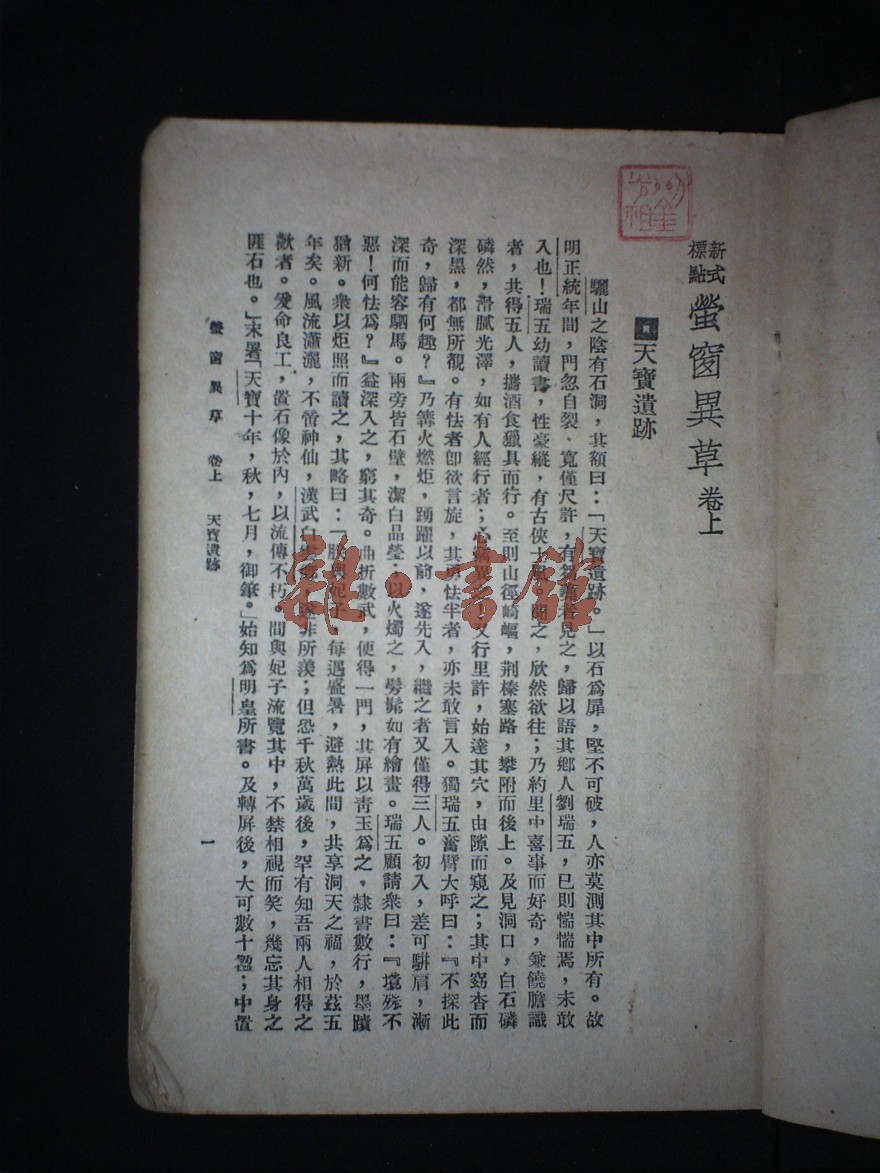 新式標點 螢窗異草 卷上
天寶遺跡
驪山之陰有石洞，其額曰：「天寶遺跡。」以石爲扉，堅不可破，人亦莫測其中所有。故
明正統年間，門忽自裂，寬僅尺許，有芻蕘者見之，歸以語其鄉人劉瑞五，已則惴惴焉，未敢
入也！瑞五幼讀書，性豪縱，有古俠士風。聞之，欣然欲往；乃約里中喜事而好奇，兼饒膽識
者，共得五人，攜酒食獵具而行。至則山徑崎嶇，荆榛塞路，攀附而後上。及見洞口，白石磷
磷然，滑膩光澤，如有人經行者；心竊異之，又行里許，始達其穴，由隙而窺之；其中窈杳而
深黑，都無所覩。有怯者卽欲言旋，其勇怯半者，亦未敢言入。獨瑞五奮臂大呼曰：『不探此
奇，歸有何趣？』乃篝火燃炬，踴躍以前，遂先入，繼之者又僅得三人。初入，差可駢肩，漸
深而能容駟馬。兩旁皆石壁，潔白晶瑩；以火燭之，髣髴如有繪畫。瑞五顧請衆曰：『境殊不
惡！何怯爲？』益深入之，窮其奇。曲折數武，便得一門，其屏以靑玉爲之，隸書數行，墨蹟
猶新。衆以炬照而讀之，其略曰：「朕與妃子，每遇盛暑，避熱此間，共享洞天之福，於茲五
年矣。風流瀟灑，不啻神仙，漢武白 非所羨；但恐千秋萬歲後，罕有知吾兩人相得之
歡者。爰命良工，置石像於內，以流傳不朽。間與妃子流覽其中，不禁相視而笑，幾忘其身之
匪石也。」末署「天寶十年，秋，七月，御筆。」始知爲明皇所書。及轉屏後，大可數十楹；中置
螢窗異草 卷上 天寶遺跡
一
雜·書館